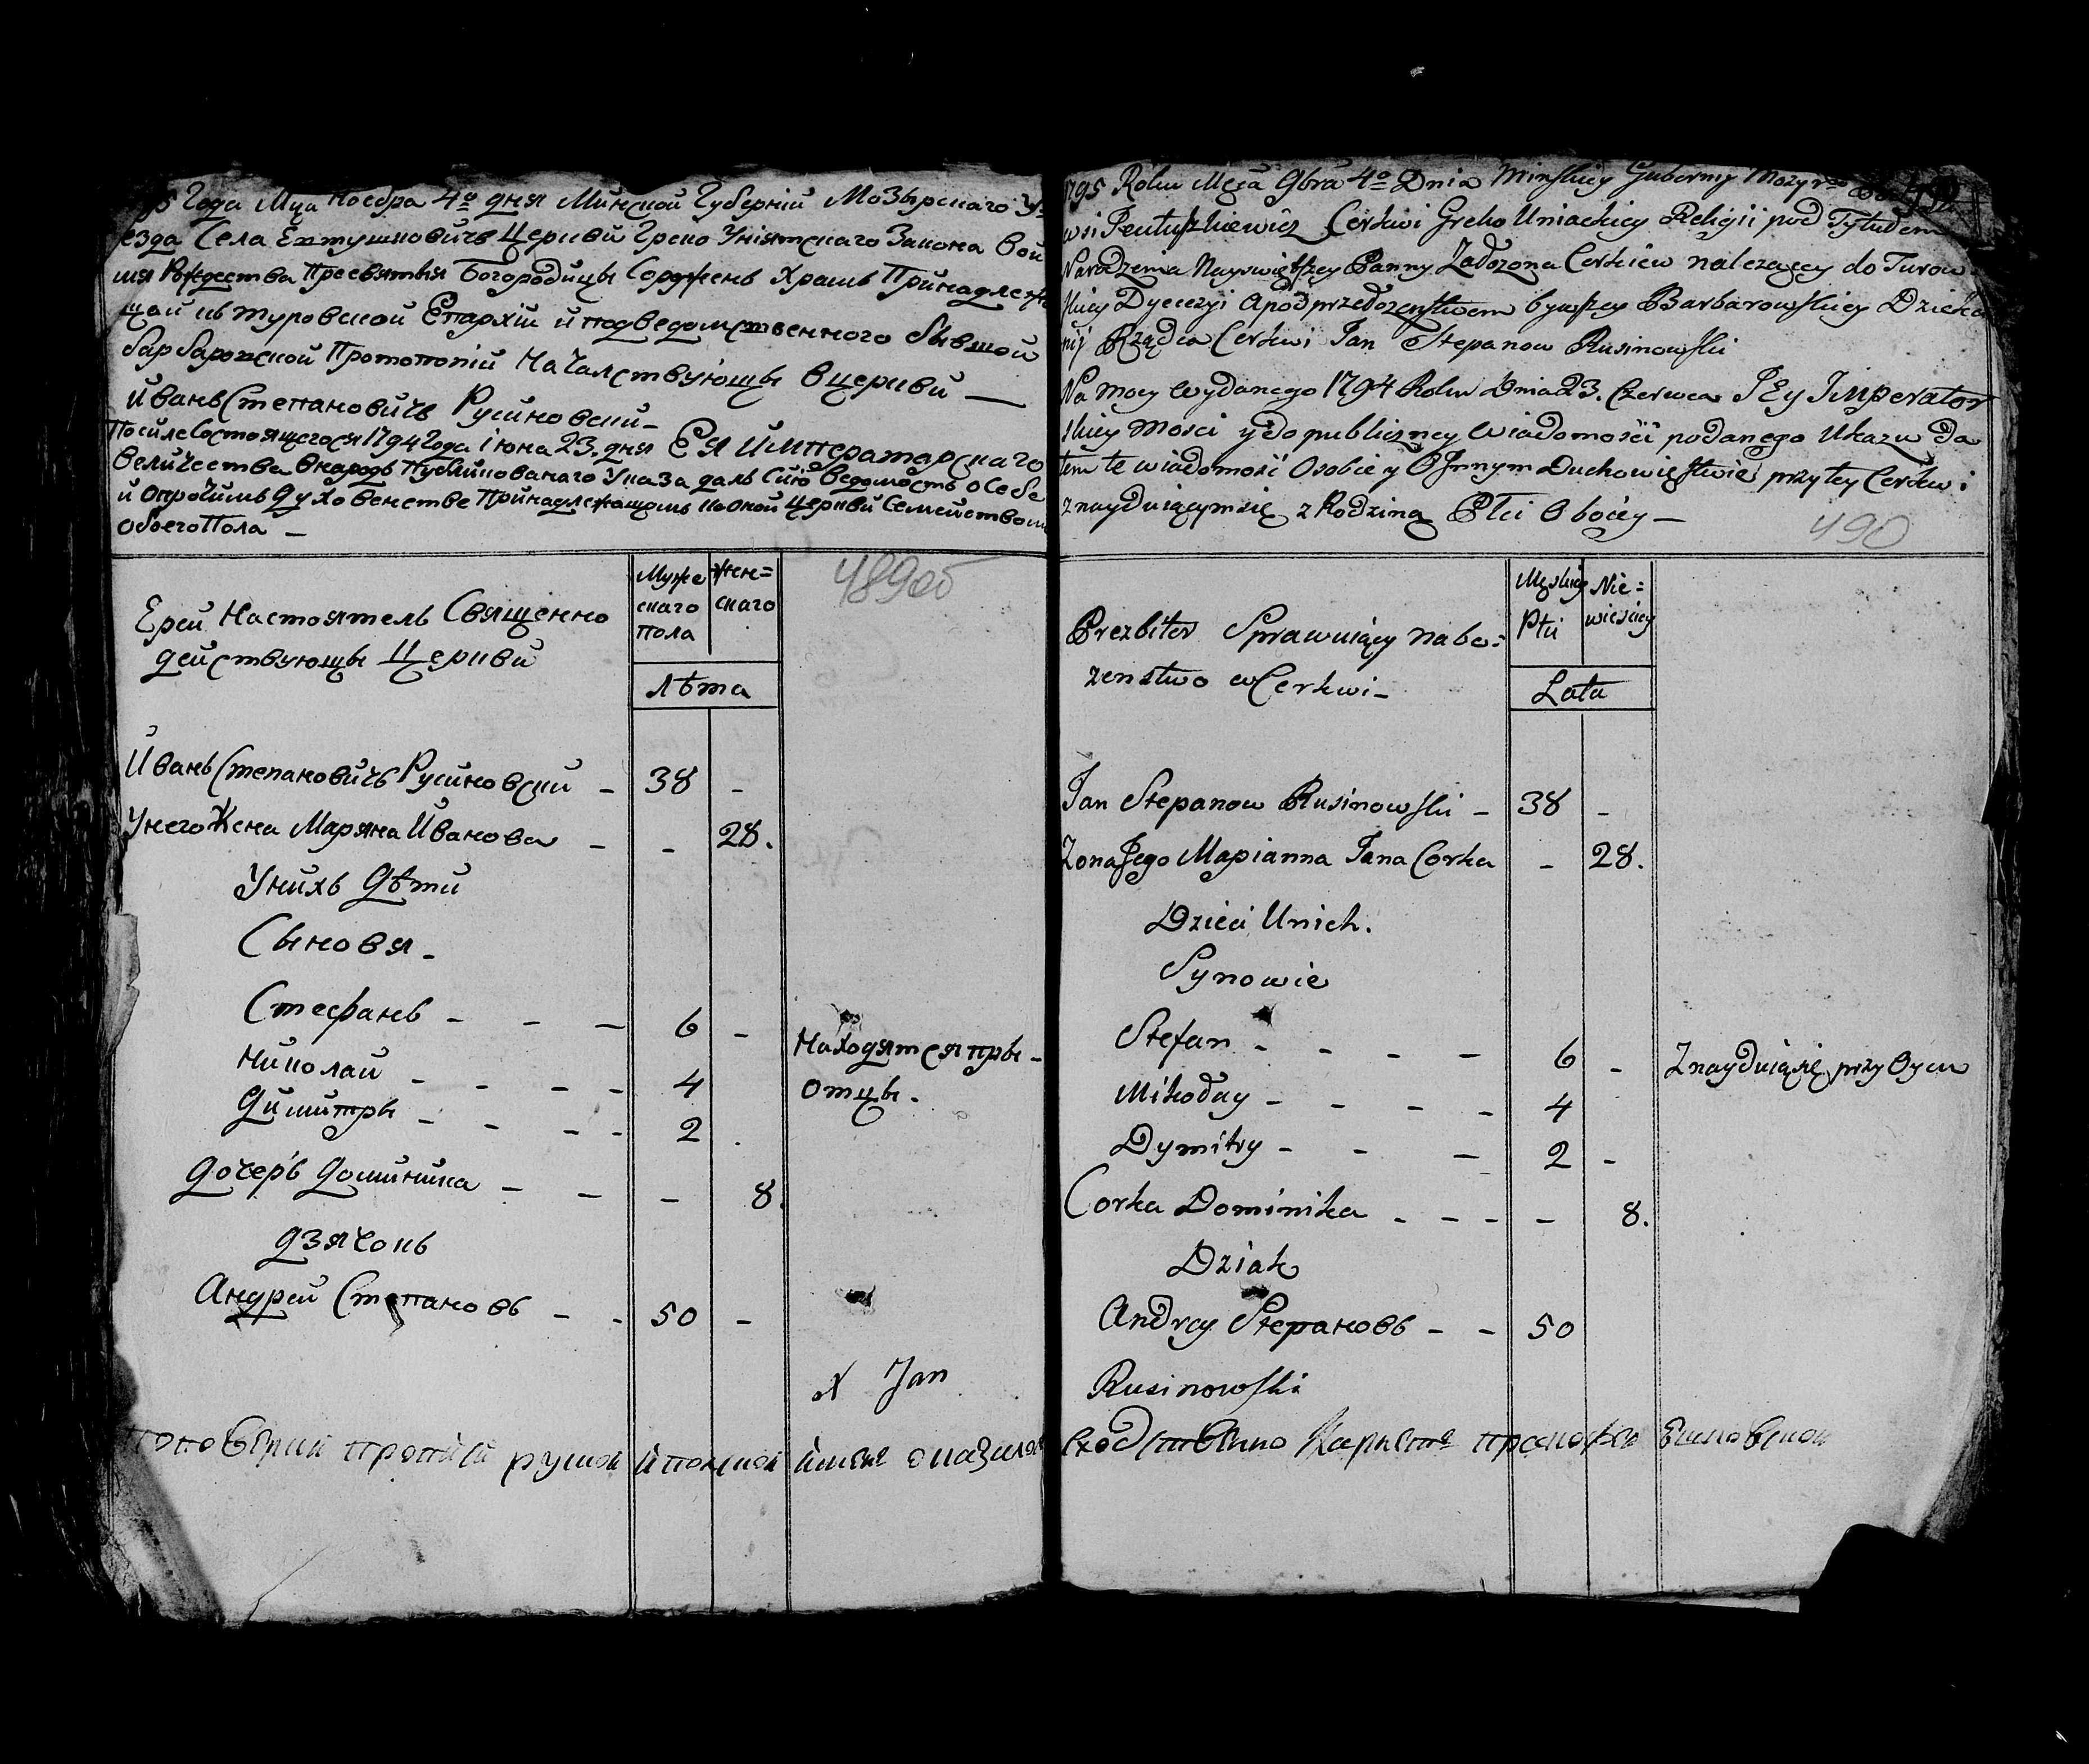 95 Года Мца Ноебра 4º дня Минской Губерній Мозырскаго У
езда Села Ехтушковичъ Церкви Греко Уніятскаго Закона вои
мя Рождества Пресвятыя Богородицы Соружень Храмъ Принадлежа
щой къ туровской Епархіи и подведомственного бывшой
барбаровской Протопопіи Началствующы вцеркви —
иванъ Степановичъ Русиновски –
Посиле Состоящегося 1794 Года Іюна 23. дня Ея императорскаго
величества внародъ Публикованаго Указа далъ Сию ведомость о Себе
и опрочимъ Духовенстве Принадлежащомъ коной Церкви Семействомъ
обоего Пола –
489об
Ерей Настоятель Священно
действующы Церкви
Муже
скаго
пола
жен=
скаго
лѣта
Иванъ Степановичъ Русиновски – 38 –
Унего Жена Маряна Иванова – – 28.
Унихъ Дѣти
Сыновя –
Стефанъ – – – 6 –
Николай – – – – 4
Димитры – – – – 2
Находятся пры –
отцы.
Дочеръ Доминика – – – 8.
дзячокъ
Андрей Степановъ – – 50 –
X Jan
1795 Roku Męca 9bra 4º Dnia Minskiey Guberny Mozyr
wsi Jeutuszkiewicz Cerkwi Greko Uniackiey Religii pod Tytułem
Narodzenia Nayswiętszey Panny Załozona Cerkiew nalezący do Turow
skiey Dyecezyi a pod przełozenstwem bywszey Barbarowskiey Dzieka
nij Rządca Cerkwi Jan Stepanow Rusinowski
Na mocy wydanego 1794 Roku Dnia 23. Czerwca JEy Imperator
skiey Mosci y do publiczney wiadomości podanego Ukazu da
tem te wiadomość o sobie y o Jnnym Duchowięstwie przy tey Cerkwi
znayduiącym się z Rodziną Płci Oboiey –
490
Prezbiter Sprawuiący nabo=
zenstwo w Cerkwi –
Męskiey
Płci
Nie=
wiesciey
Lata
Jan Stepanow Rusinowski – 38 –
Zona Jego Mapianna Jana Corka – 28.
Dzieci Unich.
Synowie
Stefan – – – – 6 –
Mikołay – – – – 4
Dymitry – – – 2 –
Znayduią się przy Oycu
Corka Dominika – – – – 8.
Dziak
Andrey Stepановъ – – 50
Rusinowski